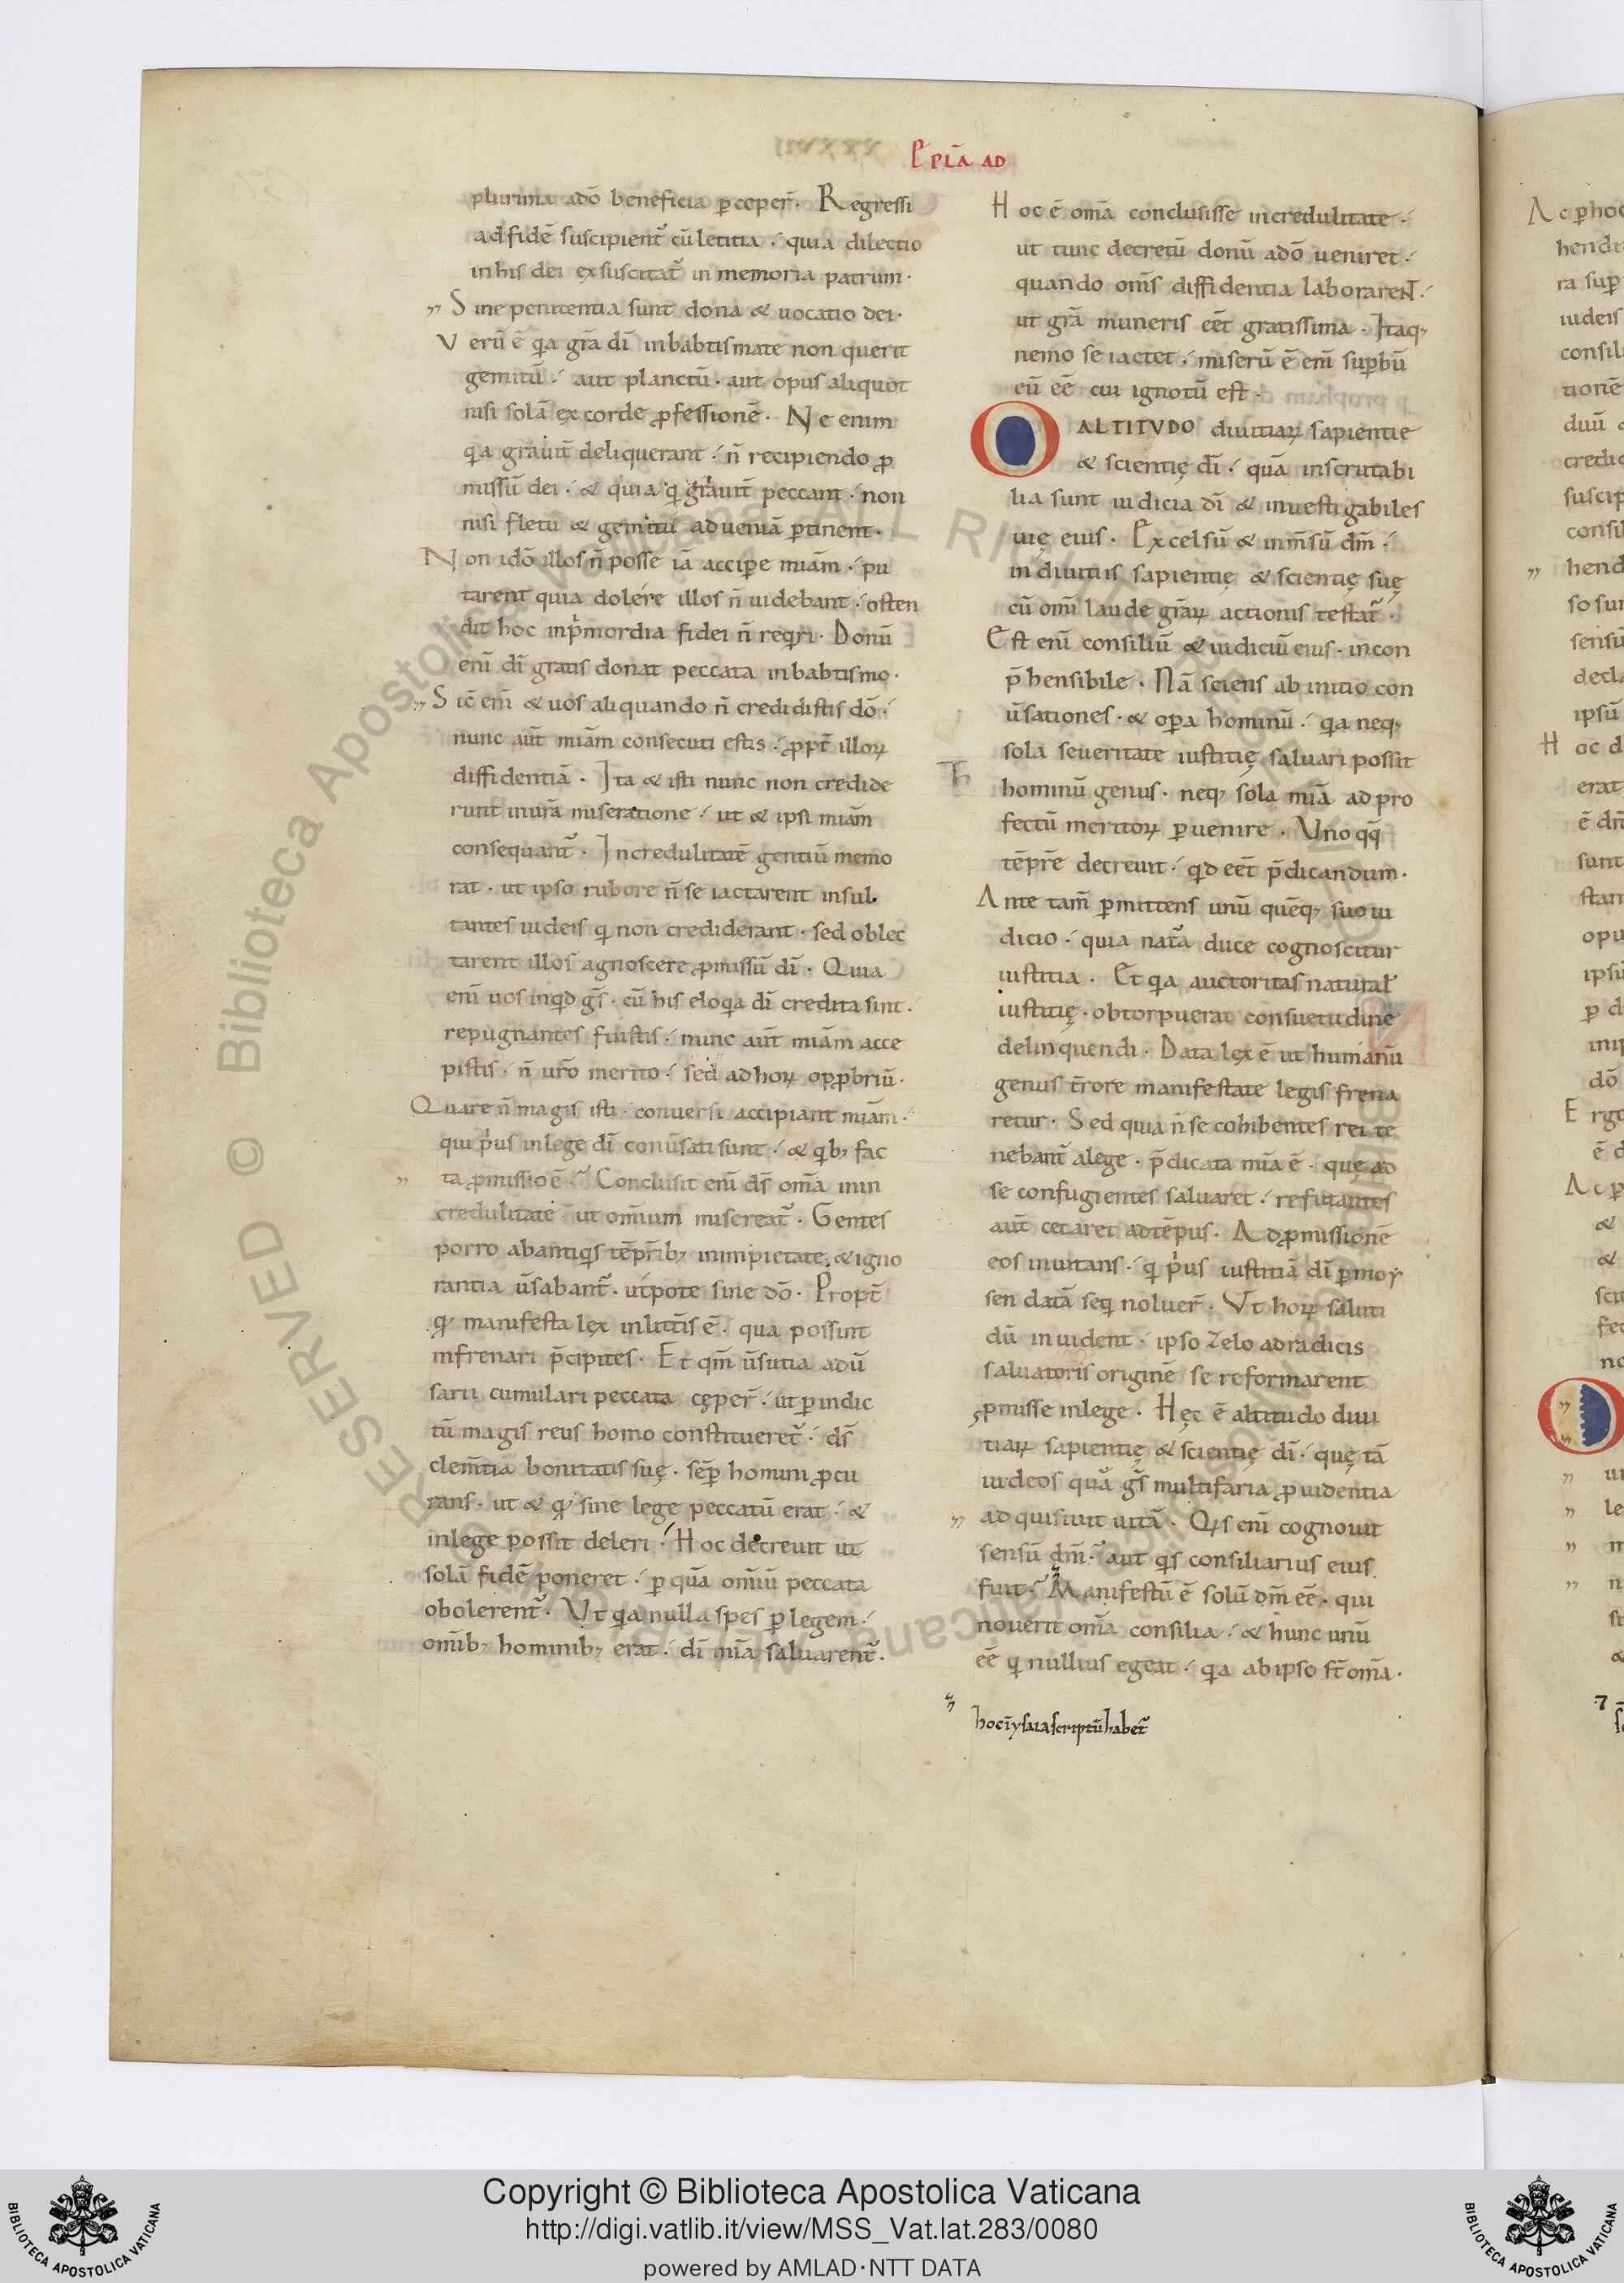 Ep̄la ad
plurima adō beneficia ꝑceper̄. Regressi
ad fidē suscipient̄ cū letitia. quia dilectio
inhis dei exsuscitat̄ in memoria patrum.
Sine penitentia sunt dona & uocatio dei.
Verū ē q̄a gr̄a dī inbabtismate non querit
gemitū. aut planctū. aut opus aliquot
nisi solā ex corde ꝓfessionē. Ne enim
q̄a grauit̄ deliquerant. n̄ recipiendo ꝓ
missū dei. & quia q̄ grauit̄ peccant. non
nisi fletu & gemitu ad ueniā ꝑtinent.
Non idō illos n̄ posse iā acciꝑe mīam. pu
tarent quia dolere illos n̄ uidebant. osten
dit hoc inp'mordia fidei n̄ req̄ri. Donū
enī dī gratis donat peccata inbabtismo.
Sic̄ enī & uos aliquando n̄ credidistis dō.
nunc aūt mīam consecuti estis. ꝓpt̄ illoꝝ
diffidentiā. Ita & isti nunc non credide
runt inur̄a miseratione. ut & ipsi mīam
consequant̄. Incredulitatē gentiū memo
rat. ut ipso rubore n̄ se iactarent insul
tantes iudeis q̄ non crediderant. sed oblec
tarent illos agnoscere ꝓmissū dī. Quia
enī uos inqd gs̄. cū his eloq̄a dī credita sint.
repugnantes fuistis. nunc aūt mīam acce
pistis. n̄ ur̄o merito. sed ad hoꝝ opꝓbriū.
Quare n̄ magis isti conuersi accipiant mīam.
qui p'us inlege dī conūsati sunt. & q̄bꝫ fac
ta ꝓmissio ē. Conclusit enī ds̄ om̄a inin
credulitate ut om̄ium misereat̄. Gentes
porro abantiq̄s tēpr̄ibꝫ inimpietate & igno
rantia ūsabant̄. utpote sine dō. Propt̄
qđ manifesta lex inlitt̄is ē. qua possint
infrenari p̄cipites. Et qm̄ ūsutia adū
sarii cumulari peccata cęper̄. ut ꝑindic
tū magis reus homo constitueret̄. ds̄
clem̄tia bonitatis suę. sēꝑ homini ꝓcu
rans. ut & qđ sine lege peccatū erat. &
inlege possit deleri. Hoc decreuit ut
solā fidē poneret. ꝑ quā om̄iū peccata
obolerent̄. Ut q̄a nulla spes ꝑ legem.
om̄ibꝫ hominibꝫ erat. dī mīa saluarent̄.
Hoc ē om̄a conclusisse incredulitate.
ut tunc decretū donū adō ueniret.
quando om̄s diffidentia laborarent.
ut gr̄a muneris eēt gratissima. Itaqꝫ
nemo se iactet. miserū ē enī suꝑbū
eū eē cui ignotū est.
O ALTITVDO diuitiaꝝ sapientie
& scientię dī. quā inscrutabi
lia sunt iudicia dī & inuestigabiles
uię eius. Excelsū & inm̄sū dm̄.
in diuitiis sapientię & scientię suę
cū om̄i laude gr̄aꝝ actionis testat̄.
Est enī consiliū & iudiciū eius. incon
p̄hensibile. Nā sciens ab initio con
ūsationes. & oꝑa hominū. q̄a neqꝫ
sola seueritate iustitię saluari possit
hominū genus. neqꝫ sola mīa ad pro
fectū meritoꝝ ꝑuenire. Uno qq̄
tēpr̄e decreuit. qd eēt p̄dicandum.
Ante tam̄ ꝑmittens unū quēqꝫ suo iu
dicio. quia nat̄a duce cognoscitur
iustitia. Et q̄a auctoritas natural̄
iustitię. obtorpuerat consuetudine
delinquendi. Data lex ē ut humanū
genus t̄rore manifestate legis frena
retur. Sed quia n̄ se cohibentes rei te
nebant̄ alege. p̄dicata mīa ē. quę ad
se confugientes saluaret. refutantes
aūt cetaret adtēpus. Ad ꝓmissionē
eos inuitans. q̄ p'us iustitiā dī ꝑ moy
sen datā seq̄ noluer̄. Ut hoꝝ saluti
dū inuident. ipso zelo adradicis
saluatoris originē se reformarent
ꝓmisse inlege. Hęc ē altitudo diui
tiaꝝ sapientię & scientię dī. quę tā
iudeos quā gs̄ multifaria ꝓuidentia
adquisiuit uitā. Q̄s enī cognouit
sensū dm̄. aut q̄s consiliarius eius
fuit. Manifestū ē solū dm̄ eē. qui
nouerit om̄a consilia. & hunc unū
eē q̄ nullius egeat. q̄a ab ipso st̄ om̄a.
hoc ī ysaia scriptū habet̄
Copyright © Biblioteca Apostolica Vaticana
http://digi.vatlib.it/view/MSS_Vat.lat.283/0080
powered by AMLAD·NTT DATA
BIBLIOTECA APOSTOLICA VATICANA
BIBLIOTECA APOSTOLICA VATICANA